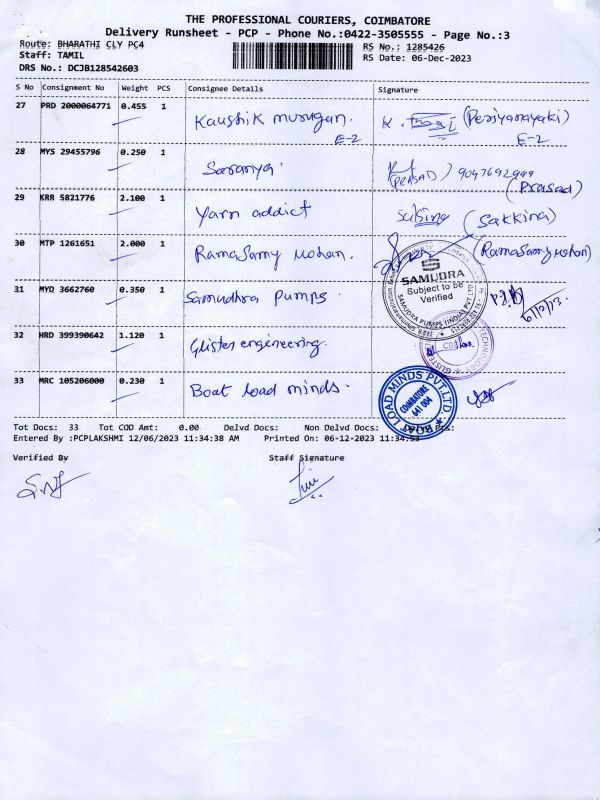 THE PROFESSIONAL COURIERS, COIMBATORE
Delivery Runsheet - PCP - Phone No.:0422-3505555 - Page No.:3
Route: BHARATHI CLY PC4 RS No.: 1285426
Staff: TAMIL RS Date: 06-Dec-2023
DRS No.: DCJB128542603
S No Consignment No Weight PCS Consignee Details Signature
27 PRD 2000064771 0.455 1 Kaushik murugan. E-2 K. (Periyanayaki) E-2
28 MYS 29455796 0.250 1 Saranya (PRASAD) 9047692999 (Prasad)
29 KRR 5821776 2.100 1 Yarn addict (Sakkina)
30 MTP 1261651 2.000 1 RamaSamy Mohan. (RamaSamy Mohan)
31 MYD 3662760 0.350 1 Samudhra Pumps
SAMUDRA
Subject to be
Verified
SAMUDRA PUMPS (INDIA) PVT LTD
32 HRD 399390642 1.120 1 Glister engineering.
TECHNOLOGY
33 MRC 105206000 0.230 1 Boat load minds.
BOAT LOAD MINDS PVT.LTD.
COIMBATORE
641 004
Tot Docs: 33 Tot COD Amt: 0.00 Delvd Docs: Non Delvd Docs: Pcs:
Entered By :PCPLAKSHMI 12/06/2023 11:34:38 AM Printed On: 06-12-2023 11:34:53
Verified By Staff Signature